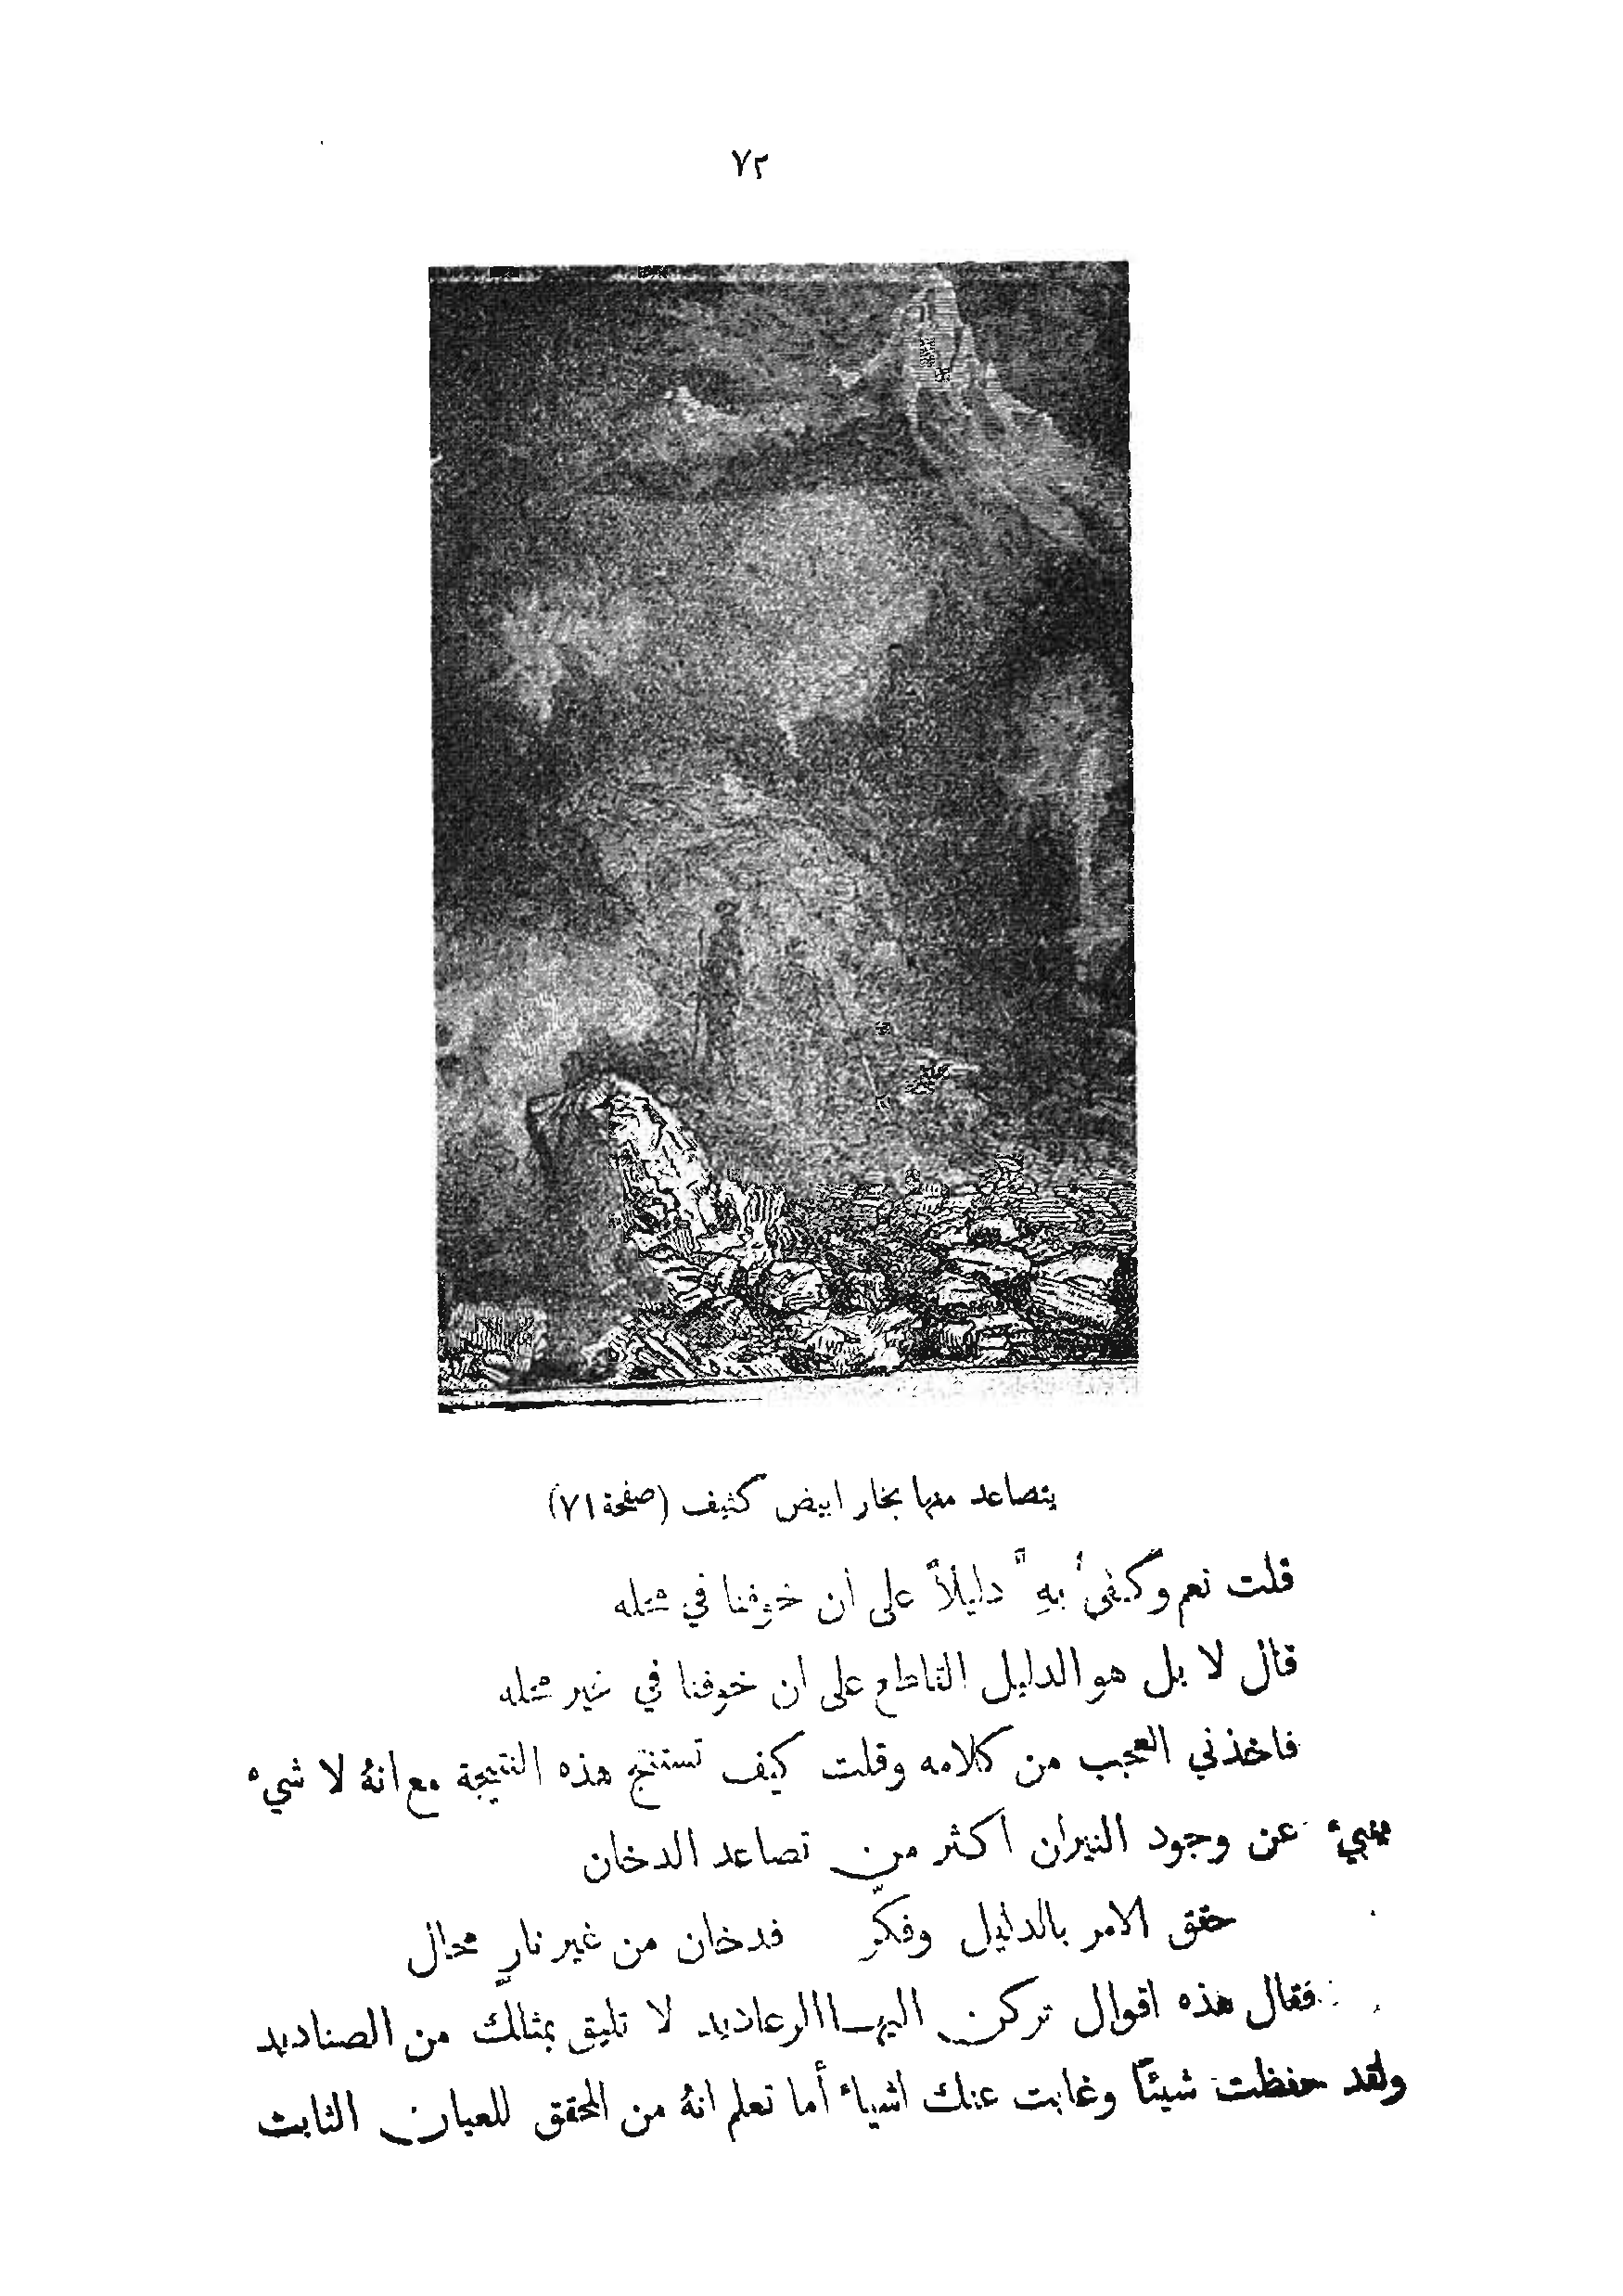 ٧٢
يتصاعد منها بخار ابيض كثيف (صفحة ٧١)
قلت نعم وكفى به دليلاً على أن خوفنا في محله
قال لا بل هو الدليل القاطع على ان خوفنا في غير محله
فاخذني العجب من كلامه وقلت كيف تستنتج هذه النتيجة مع انهُ لا شيء
ينبيء عن وجود النيران أكثر من تصاعد الدخان
حقق الامر بالدليل وفكّر فدخان من غير نارٍ محال
فقال هذه اقوال تركن اليها الرعاديد لا تليق بمثالك من الصناديد
ولقد حفظت شيئًا وغابت عنك اشياء أما تعلم انهُ من المحقق للعيان الثابت